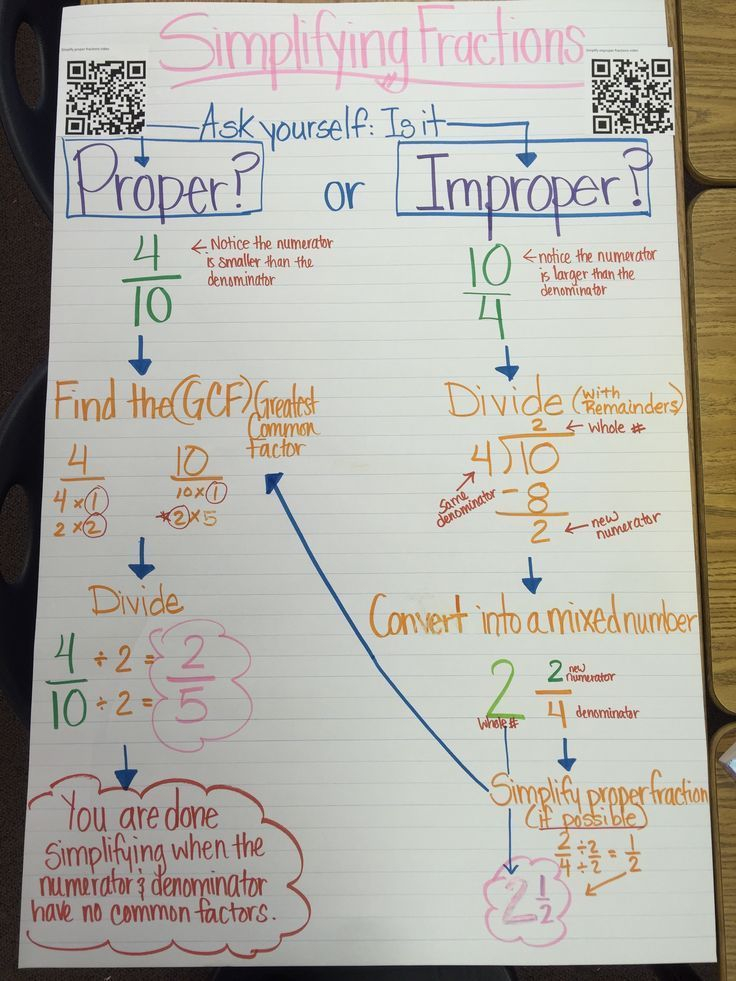 Simplifying Fractions
Simplify proper fractions video
Simplify improper fractions video
Ask yourself: Is it
Proper? or Improper?
4
10
← Notice the numerator
is smaller than the
denominator
Find the (GCF) Greatest
Common
Factor
4
4 × 1
2 × 2
10
10 × 1
*2 × 5
Divide
4 ÷ 2 = 2
10 ÷ 2 = 5
You are done
simplifying when the
numerator & denominator
have no common factors.
10
4
← notice the numerator
is larger than the
denominator
Divide (with
Remainders)
2 ← Whole #
4)10
same
denominator
- 8
2 ← new
numerator
Convert into a mixed number
2 2 new
numerator
Whole # 4 denominator
Simplify proper fraction
(if possible)
2 ÷ 2 = 1
4 ÷ 2 2
2 1/2